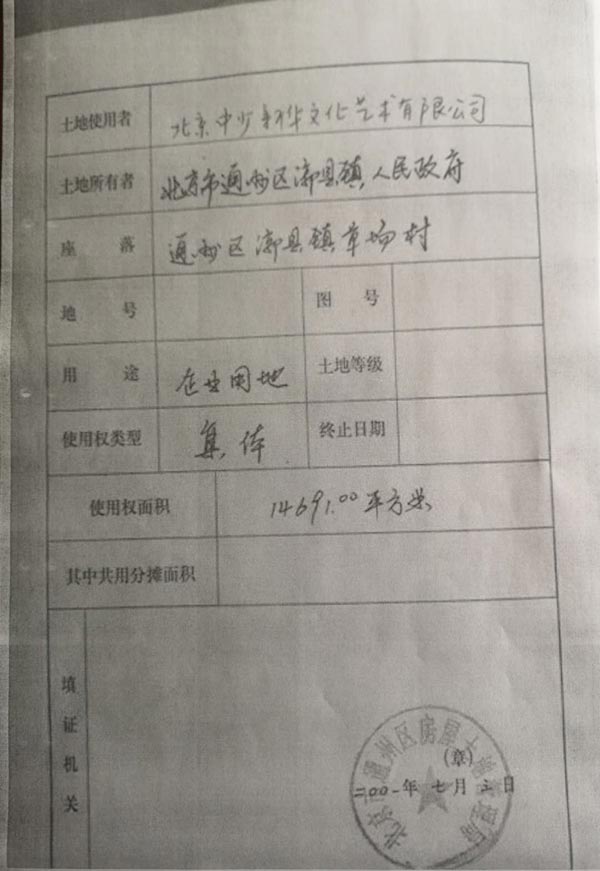 土地使用者 北京中少新华文化艺术有限公司
土地所有者 北京市通州区漷县镇人民政府
座落 通州区漷县镇草场村
地号 图号
用途 企业用地 土地等级
使用权类型 集体 终止日期
使用权面积 14691.00平方米
其中共用分摊面积
填证机关
北京市通州区房屋土地管理局
(章)
二00一年七月三日